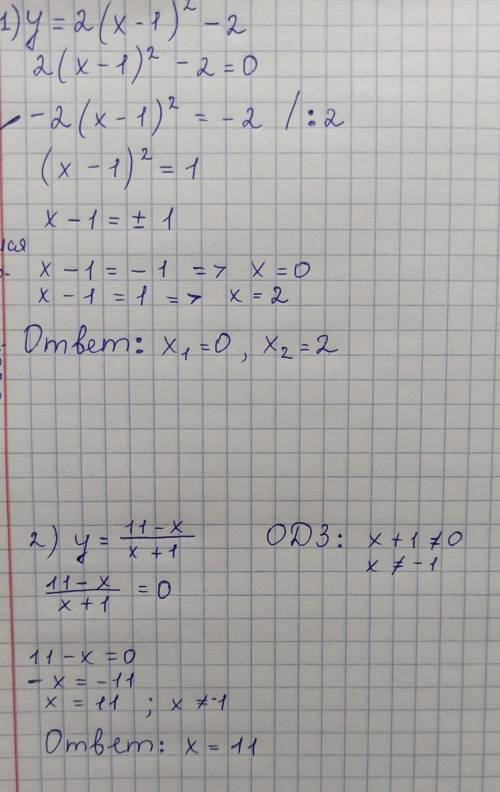 1) y = 2(x-1)² - 2
2(x-1)² - 2 = 0
- 2(x-1)² = - 2 /:2
(x - 1)² = 1
x - 1 = ± 1
x - 1 = - 1 => x = 0
x - 1 = 1 => x = 2
Ответ: x₁ = 0, x₂ = 2
2) y = (11-x)/(x+1) ОДЗ: x + 1 ≠ 0
x ≠ -1
(11-x)/(x+1) = 0
11 - x = 0
- x = - 11
x = 11 ; x ≠ -1
Ответ: x = 11